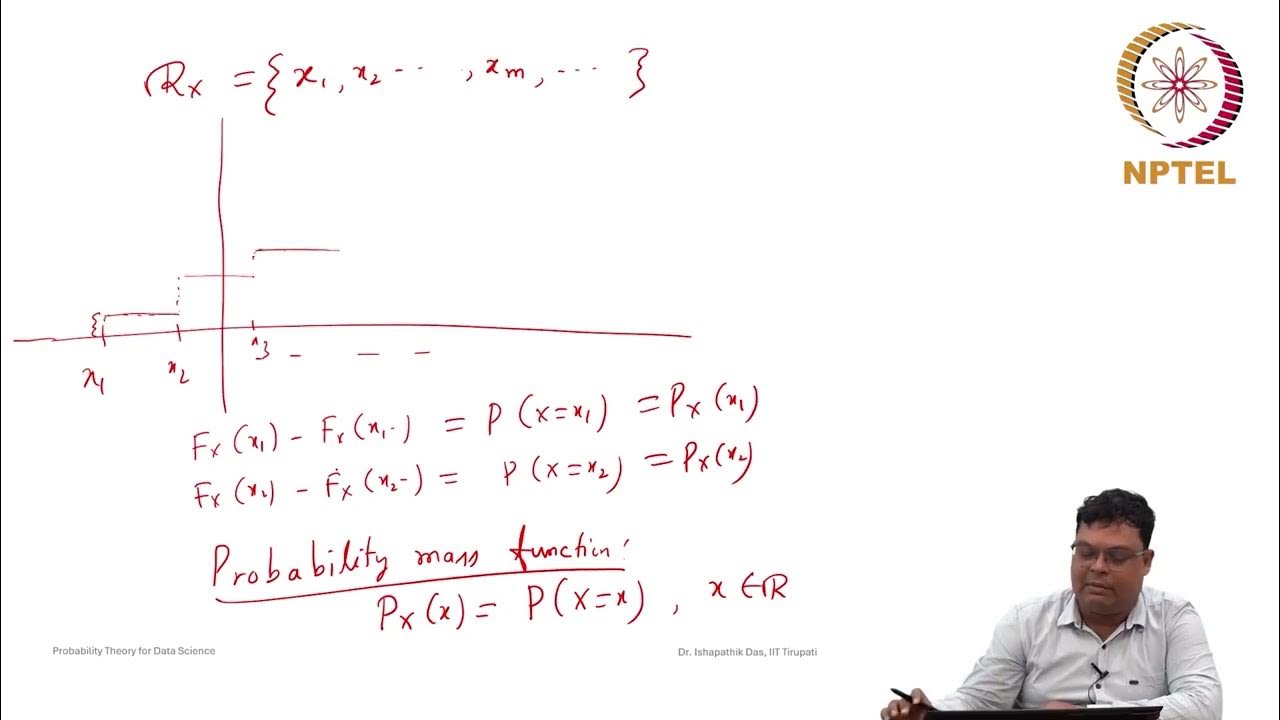 R_X = { x₁, x₂ ... , x_m, ... }
x₁ x₂ x₃ - - -
F_X(x₁) - F_X(x₁-) = P(X=x₁) = P_X(x₁)
F_X(x₂) - F_X(x₂-) = P(X=x₂) = P_X(x₂)
Probability mass function:
P_X(x) = P(X=x), x ∈ R
NPTEL
Probability Theory for Data Science
Dr. Ishapathik Das, IIT Tirupati